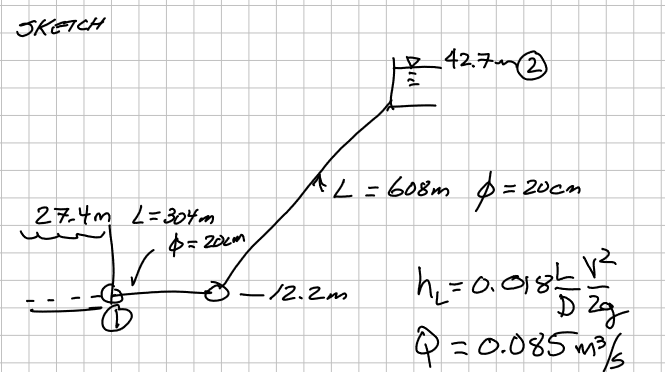 SKETCH
42.7m ②
L = 608m ϕ = 20cm
27.4m L = 304m
ϕ = 20cm
12.2m
①
h_L = 0.018 L/D V²/2g
Q = 0.085 m³/s